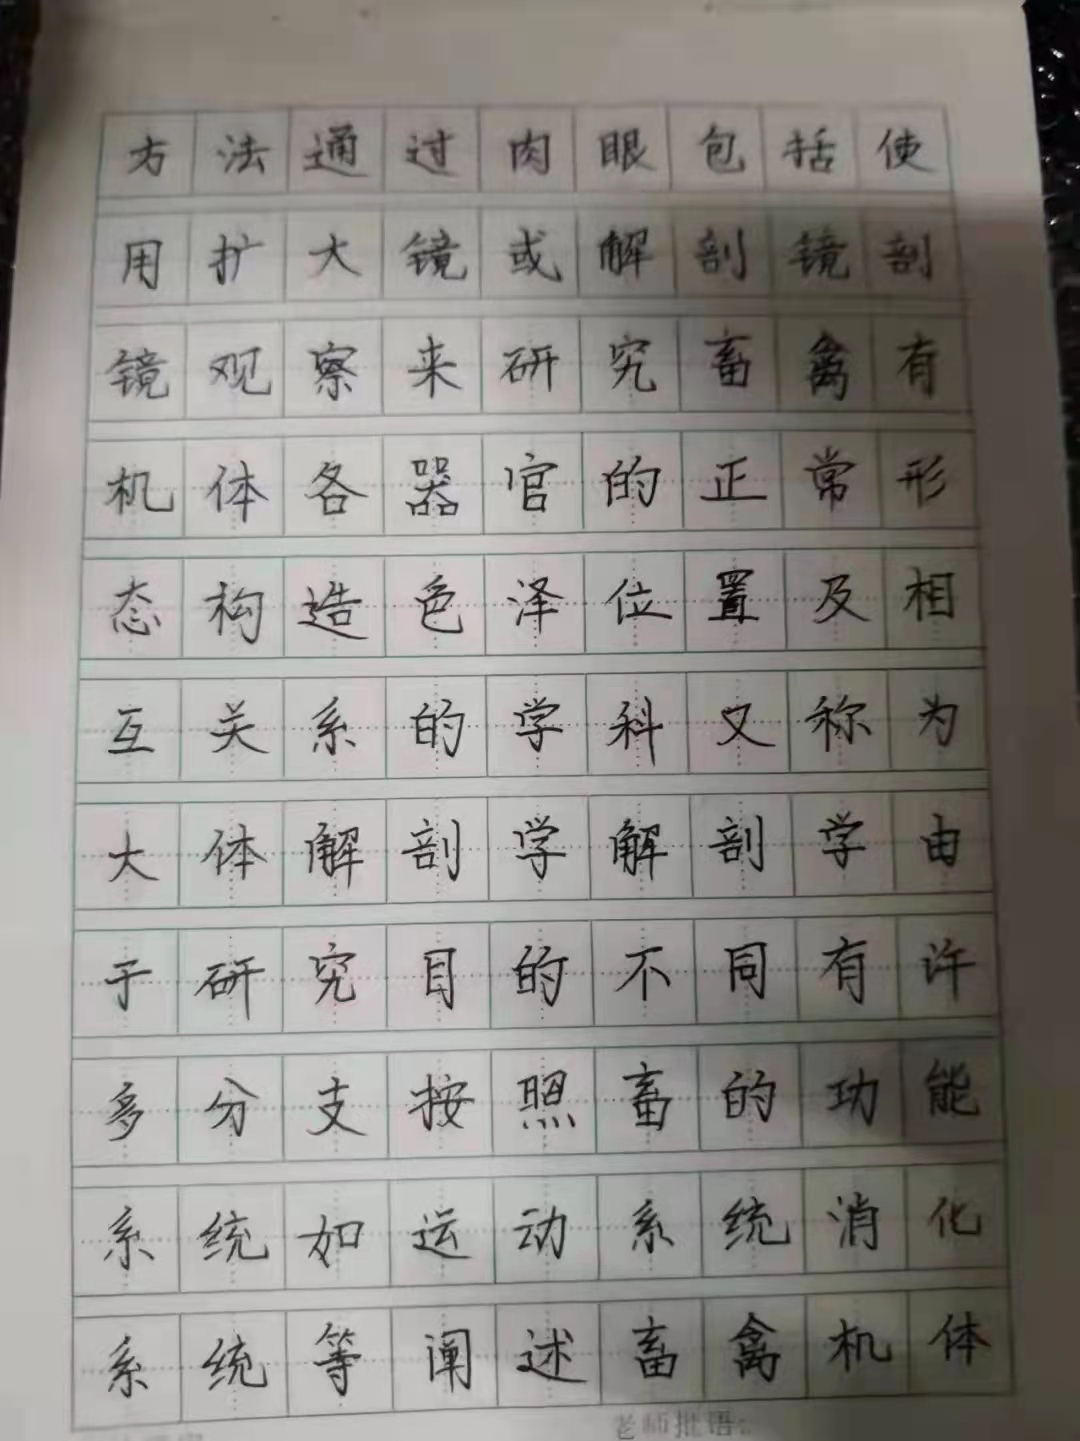 方法通过肉眼包括使
用扩大镜或解剖镜剖
镜观察来研究畜禽有
机体各器官的正常形
态构造色泽位置及相
互关系的学科又称为
大体解剖学解剖学由
于研究目的不同有许
多分支按照畜的功能
系统如运动系统消化
系统等阐述畜禽机体
老师批语: